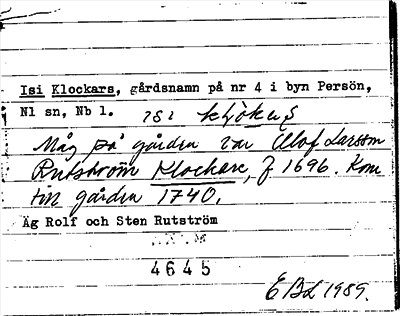 Isi Klockars, gårdsnamn på nr 4 i byn Persön,
Nl sn, Nb l.
Måg på gården var Olof Larsson
Rutström Klockare, f 1696. Kom
till gården 1740.
Äg Rolf och Sten Rutström
4645
EBL 1989.